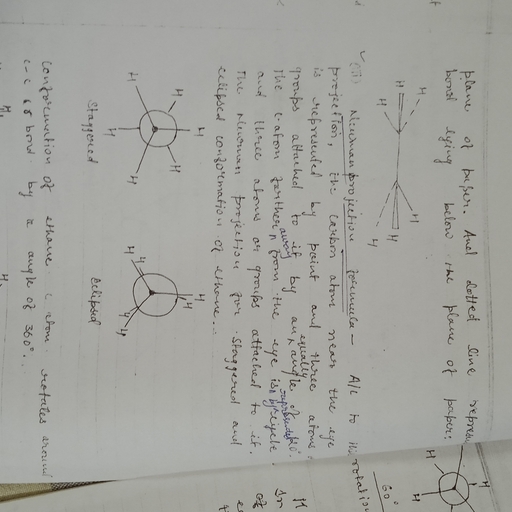 plane of paper. And dotted line repres
bond lying below the plane of paper.
H H
H H
H H
(iii) Newman projection formula - A/c to
projection, the carbon atom near the eye
is represented by point and three atoms
groups attached to it by an equally angle of
The C-atom farther away from the eye is represented by cycle
and three atoms or groups attached to it.
The Newman projection for staggered and
eclipsed conformation of ethane...
H H H
H H H
Staggered
H H H
H H H
Eclipsed
conformation of ethane C atom rotates around
c-c bond by a angle of 360°..
rotation
60°
H
H